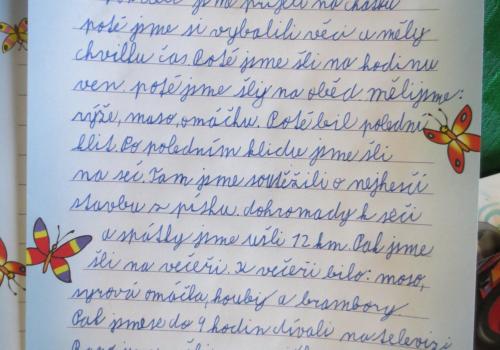 jsme přijeli na chatku
poté jsme si vybalili věci a měly
chvilku čas. Poté jsme šli na hodinu
ven. poté jsme šly na oběd. měli jsme:
rýže, maso, omáčku. Poté bil polední
klit. Po poledním klidu jsme šli
na seč. Tam jsme soutěžili o nejhesčí
stavbu z písku. dohromady k seči
a spátky jsme ušli 12 km. Pak jsme
šli na večeři. K večeři bilo: maso,
syrová omáčka, houby a brambory.
Pak jsme se do 9 hodin dívali na televizi